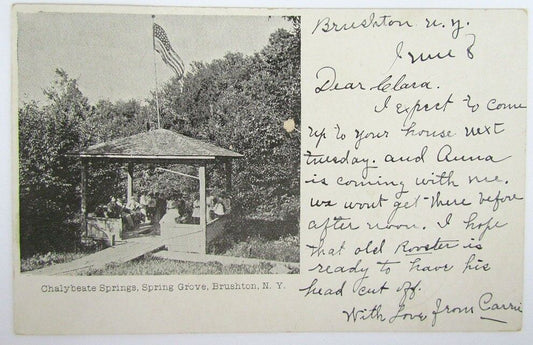 Brushton n.y.
June 8
Dear Clara.
I expect to come
up to your house next
tuesday. and Anna
is coming with me.
we wont get there before
after noon. I hope
that old Rooster is
ready to have his
head cut off.
With Love from Carrie
Chalybeate Springs, Spring Grove, Brushton, N. Y.